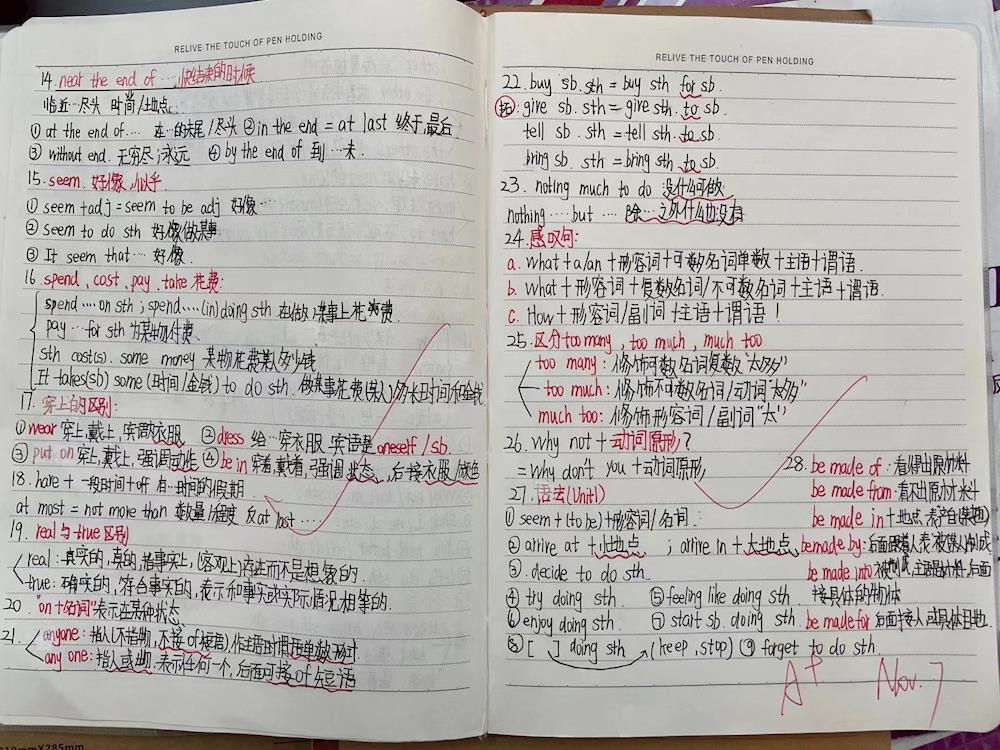 RELIVE THE TOUCH OF PEN HOLDING
14. near the end of …快结束的时候
临近…尽头 时间/地点.
① at the end of…. 在…的末尾/尽头 ② in the end = at last 终于,最后
③ without end. 无穷尽;永远 ④ by the end of 到…末.
15. seem. 好像,似乎
① seem+adj = seem to be adj 好像…
② seem to do sth 好像做某事
③ It seem that…. 好像.
16. spend, cost, pay, take 花费:
spend…. on sth ; spend….(in) doing sth 在做某事上花费.
pay …for sth 为某物付费.
sth cost(s). some money 某物花费某人多少钱
It takes(sb) some (时间/金钱) to do sth. 做某事花费(某人)多长时间和金钱
17. 穿上的区别:
① wear 穿上,戴上, 衣服 ② dress 给…穿衣服.宾语是 oneself / sb.
③ put on 穿上,戴上,强调动作 ④ be in 穿着,戴着,强调状态, 后接衣服/颜色
18. have + 一段时间 + off 有…时间的假期.
at most = not more than 数量/程度 反 at last ….
19. real 与 true 区别
real: 真实的,真的,指事实上,(客观上)存在而不是想象的.
true: 确实的,符合事实的,表示和事实或实际情况相等的.
20. "on+名词"表示在某种状态
21. anyone: 指人(不指物,不接of短语)作主语时谓语单数形式
any one: 指人或物,表示任何一个,后面可接of短语
210mmX285mm
RELIVE THE TOUCH OF PEN HOLDING
22. buy sb. sth = buy sth for sb.
拓: give sb. sth = give sth. to sb.
tell sb. sth = tell sth. to sb.
bring sb. sth = bring sth to sb.
23. noting much to do 没什么可做
nothing….but …. 除…之外什么也没有
24. 感叹句:
a. What+a/an+形容词+可数名词单数+主语+谓语.
b. What+形容词+复数名词/不可数名词+主语+谓语.
c. How+形容词/副词+主语+谓语!
25. 区分too many, too much, much too
too many: 修饰可数名词复数"太多"
too much: 修饰不可数名词/动词"太多"
much too: 修饰形容词/副词"太"
26. Why not + 动词原形?
= Why don't you +动词原形
27. 语法(Unit1)
① seem + (to be)+形容词/名词.
② arrive at +小地点 ; arrive in +大地点.
③. decide to do sth.
④ try doing sth. ⑤ feeling like doing sth.
⑥ enjoy doing sth. ⑦ start sb. doing sth.
⑧ [ ] doing sth (keep, stop) ⑨ forget to do sth.
28. be made of: 看得出原材料
be made from: 看不出原材料
be made in +地点,表产自(某地)
be made by: 后面跟着人表被某人制成
be made into 被制成,主语是材料,后面
接具体的物体
be made for 后面接人或具体目地.
A+ Nov. 7